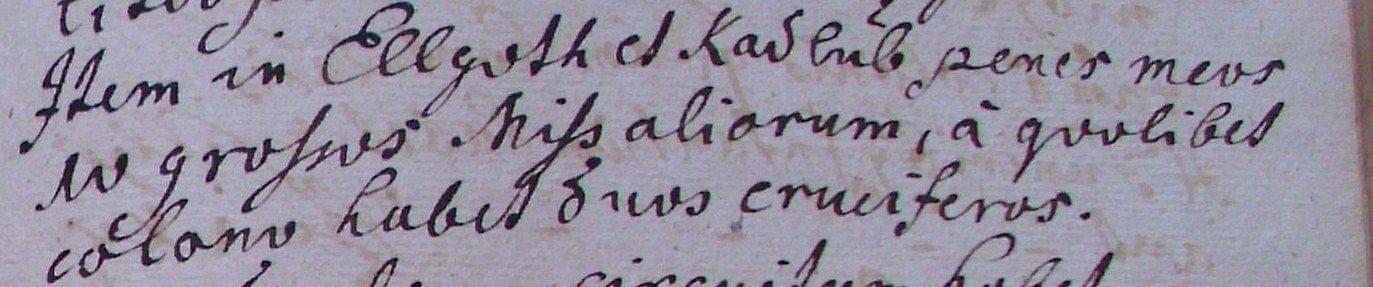 Item in Ellgoth et Kadlub penes meos
10 grossos Missaliorum, à quolibet
colono habet duos cruciferos.
circuitum habet